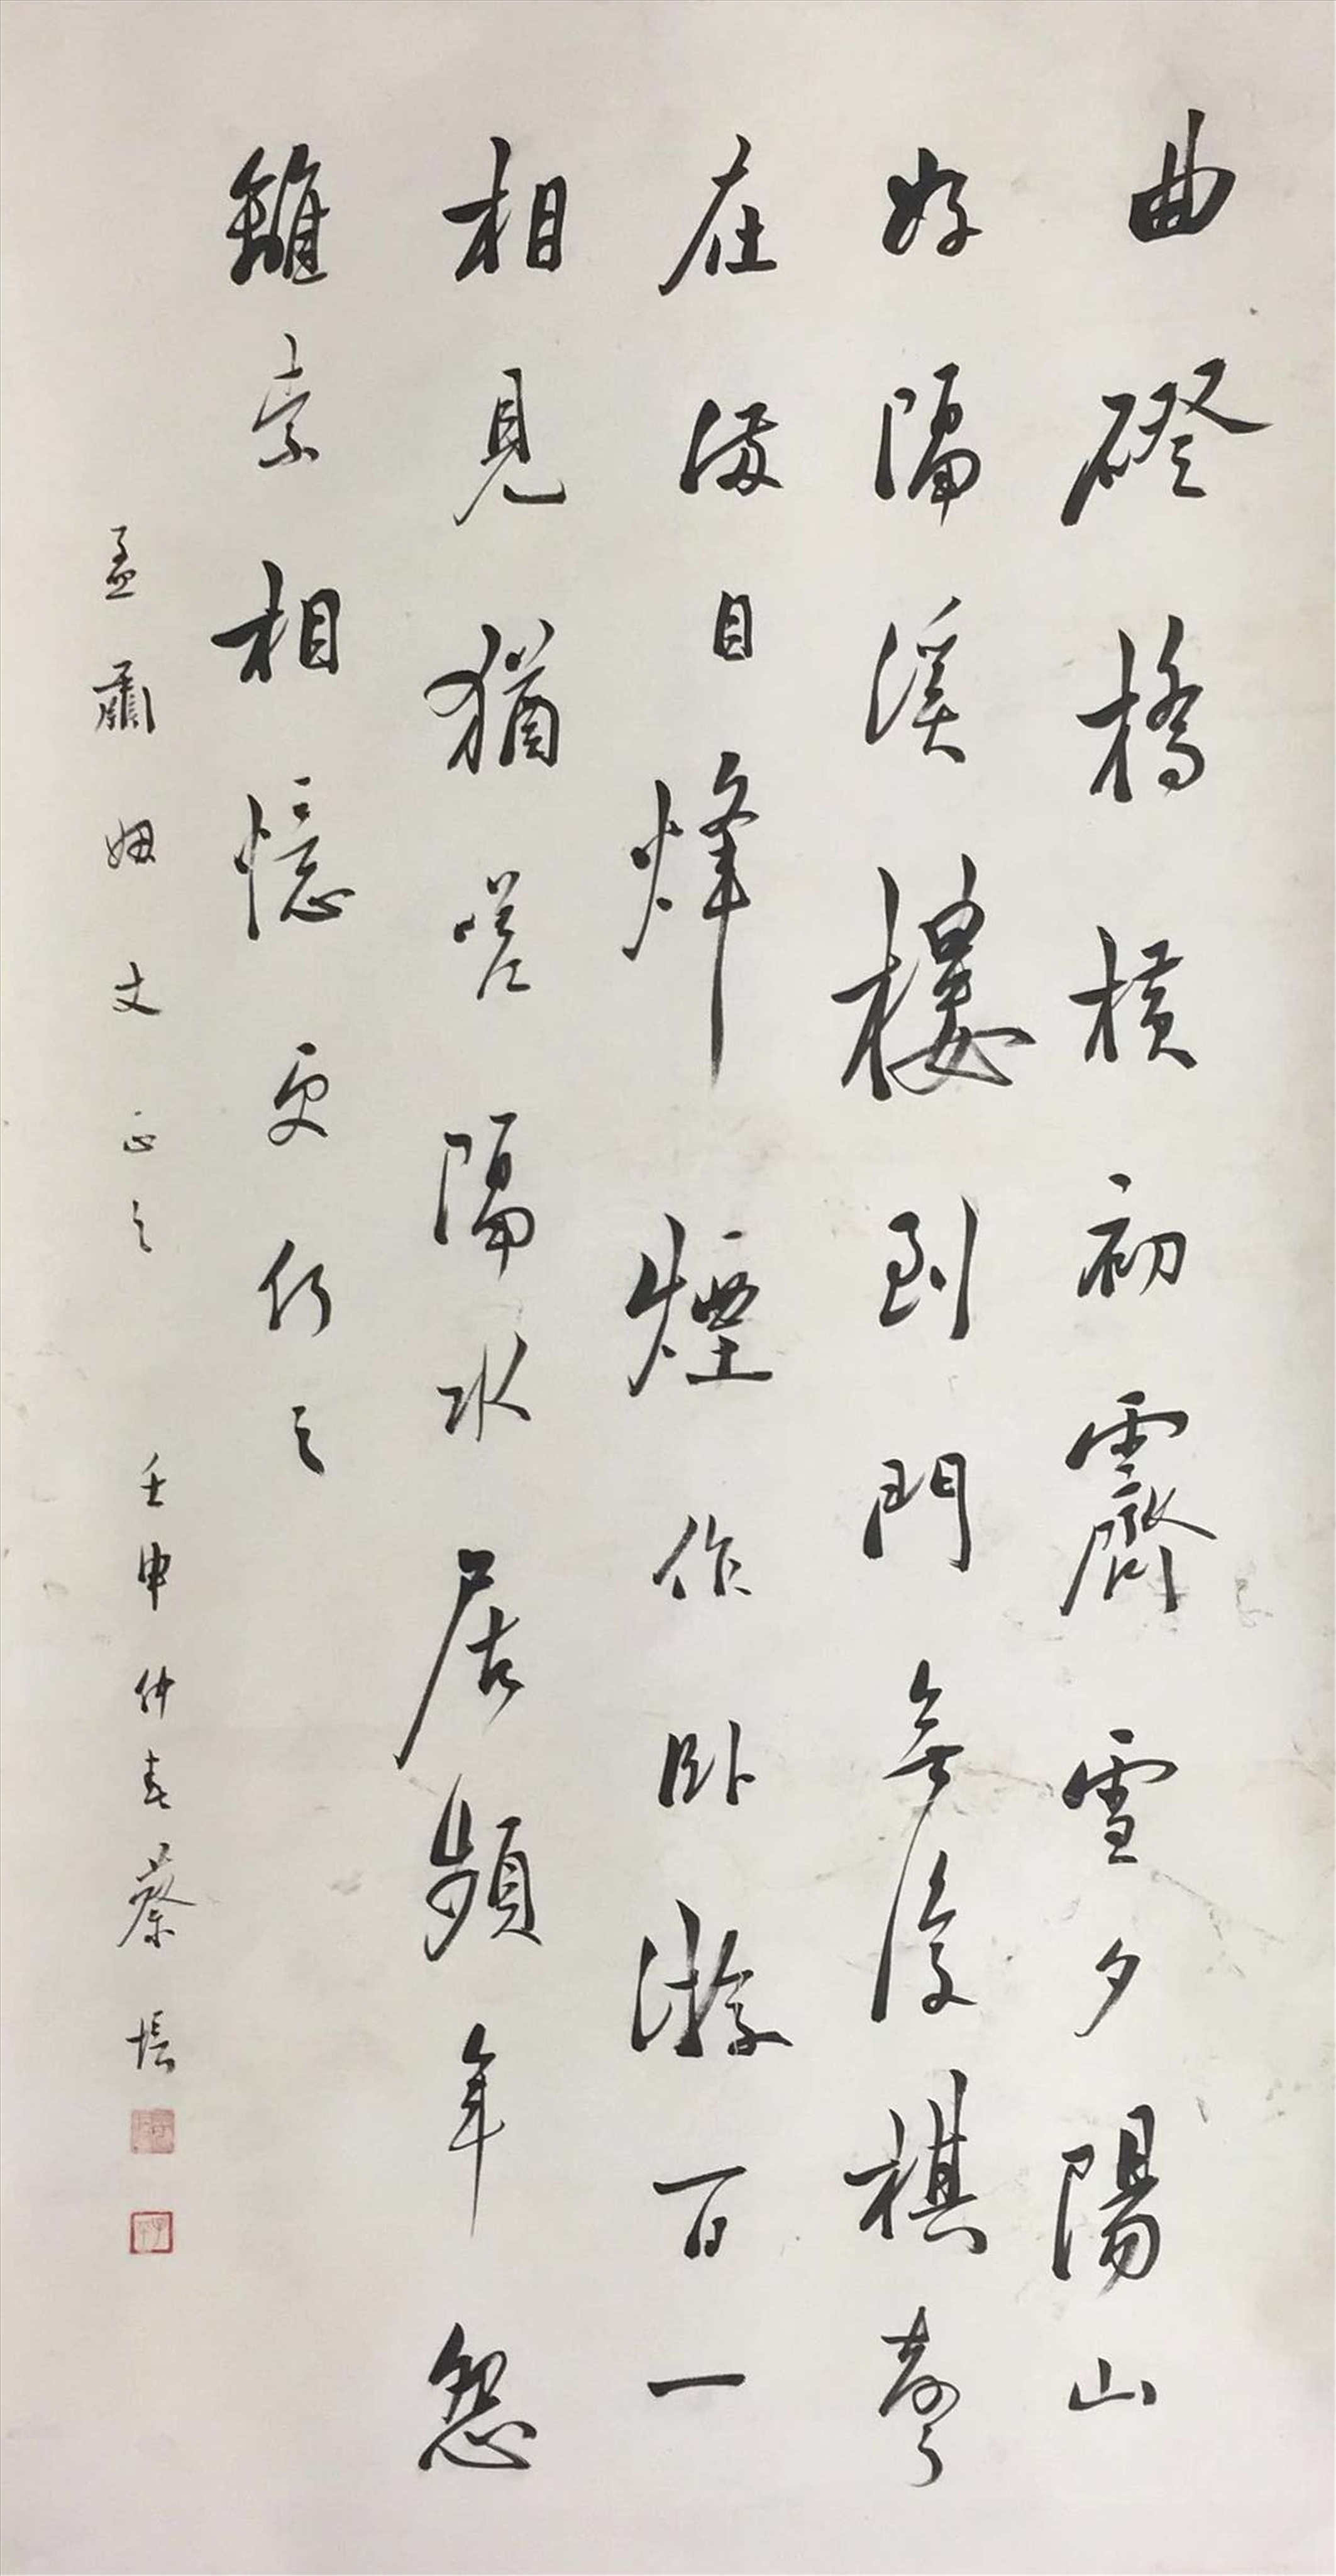 曲磴橋橫初霽雪夕陽山
好隔溪樓到門無復棋聲
在滿目烽煙作臥游百一
相見猶嗟隔水居頻年怨
離索相憶更何之
孟肅姻丈正之 壬申仲春蔡培